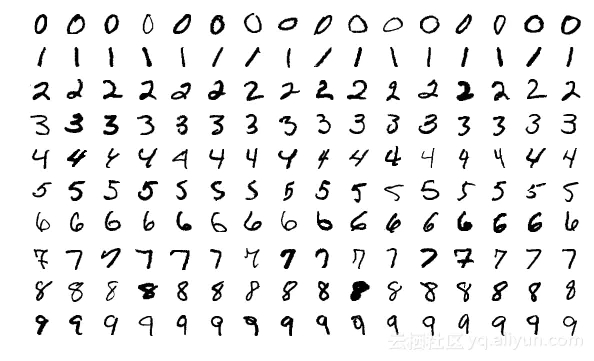 0 0 0 0 0 0 0 0 0 0 0 0 0 0 0 0
1 1 1 1 1 1 1 1 1 1 1 1 1 1 1 1
2 2 2 2 2 2 2 2 2 2 2 2 2 2 2 2
3 3 3 3 3 3 3 3 3 3 3 3 3 3 3 3
4 4 4 4 4 4 4 4 4 4 4 4 4 4 4 4
5 5 5 5 5 5 5 5 5 5 5 5 5 5 5 5
6 6 6 6 6 6 6 6 6 6 6 6 6 6 6 6
7 7 7 7 7 7 7 7 7 7 7 7 7 7 7 7
8 8 8 8 8 8 8 8 8 8 8 8 8 8 8 8
9 9 9 9 9 9 9 9 9 9 9 9 9 9 9 9
云栖社区 yq.aliyun.com